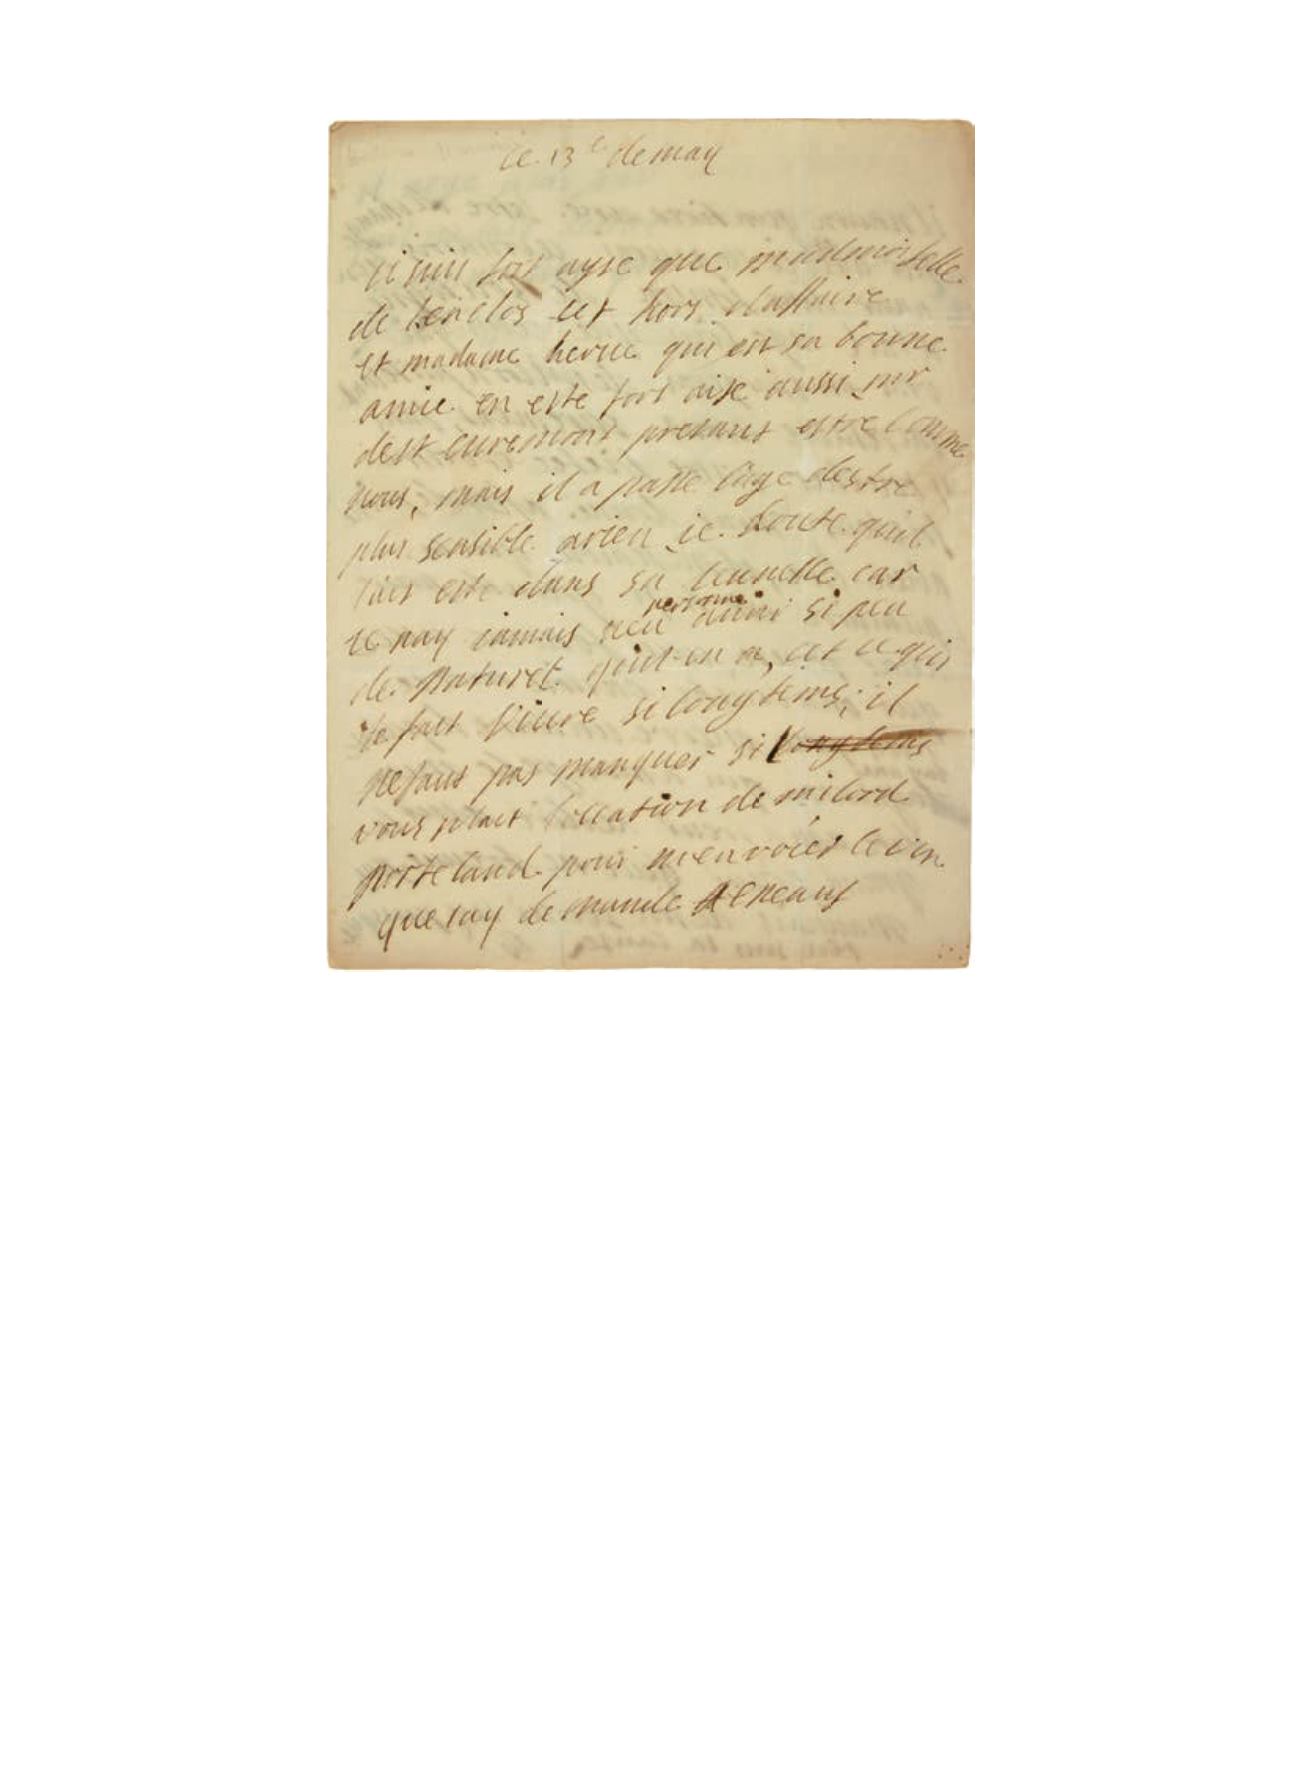 ce 13e de may
ie suis fort ayse que mademoiselle
de lenclos est hors daffaire
et madame hervē qui est sa bonne
amie en este fort aise aussi mr
dest euremont pretant estre comme
nous, mais il a passe lage destre
plus sensible arien ie doute quil
lait este dans sa leunesse car
ie nay iamais veu personne aiant si peu
de naturel quil en a, cet ce qui
le fait vivre si longtems; il
ne faut pas manquer si longtems
vous plait loccation de milord
porteland pour menvoier le vin
que iay demande